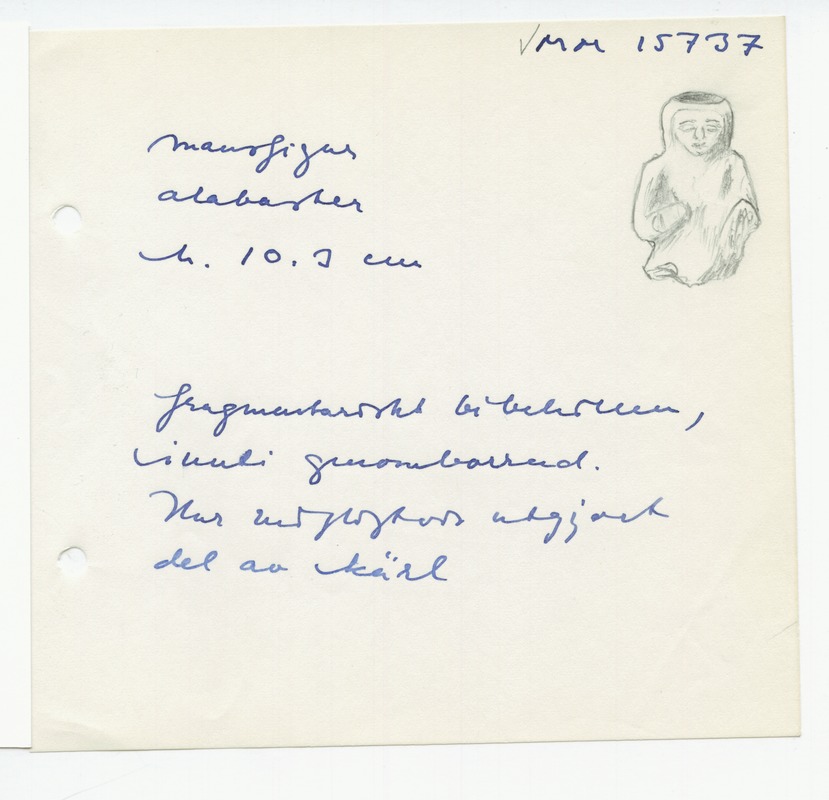 √MM 15737
mansfigur
alabaster
h. 10.3 cm
fragmentariskt bibehållen,
inuti genomborrad.
Har möjligtvis utgjort
del av kärl